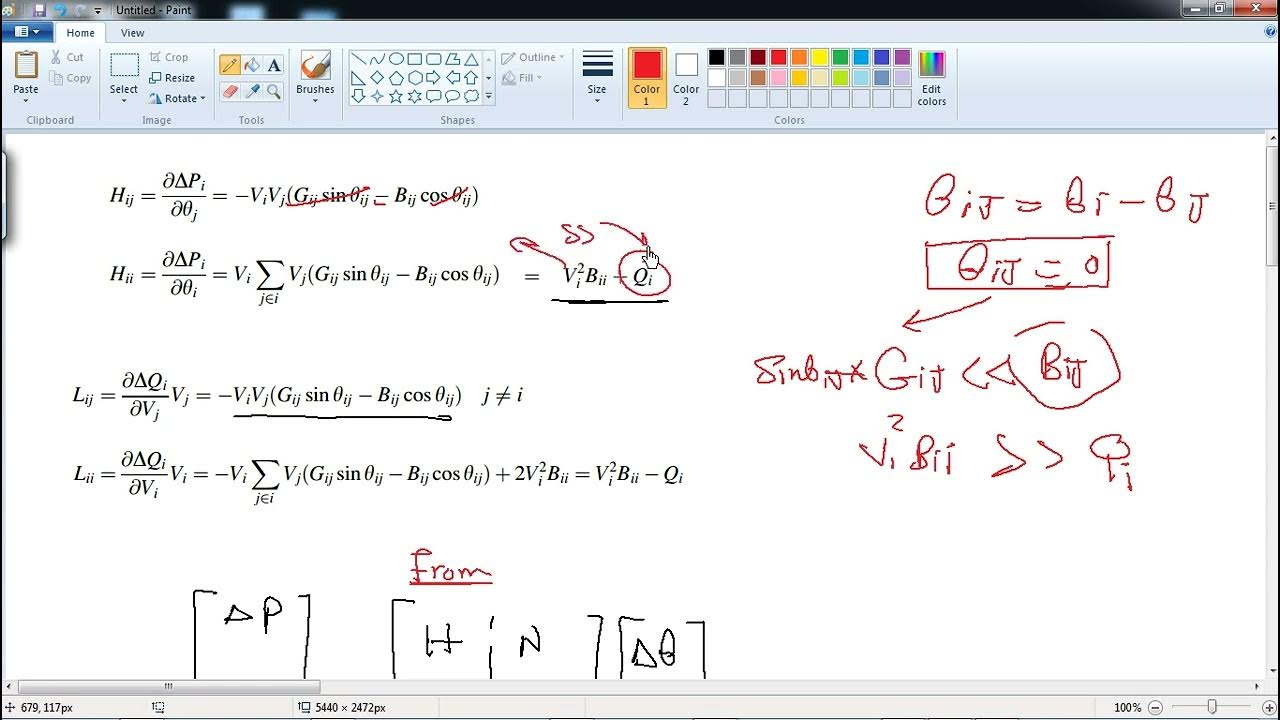 Untitled - Paint
Home View
Paste Cut Copy
Clipboard
Select Crop Resize Rotate
Image
Tools
Brushes
Shapes
Outline
Fill
Size
Color 1
Color 2
Edit colors
Colors
H_ij = ∂ΔP_i/∂θ_j = −V_iV_j(G_ij sin θ_ij − B_ij cos θ_ij)
θ_iJ = θ_i − θ_J
>>
H_ii = ∂ΔP_i/∂θ_i = V_i ∑_{j∈i} V_j(G_ij sin θ_ij − B_ij cos θ_ij) = V_i²B_ii + Q_i
θ_iJ = 0
sinθ_iJ × G_iJ << B_iJ
L_ij = ∂ΔQ_i/∂V_j V_j = −V_iV_j(G_ij sin θ_ij − B_ij cos θ_ij) j ≠ i
V_i² B_ii >> Q_i
L_ii = ∂ΔQ_i/∂V_i V_i = −V_i ∑_{j∈i} V_j(G_ij sin θ_ij − B_ij cos θ_ij) + 2V_i²B_ii = V_i²B_ii − Q_i
From
[ΔP] [H ¦ N] [Δθ]
679, 117px 5440 × 2472px 100%